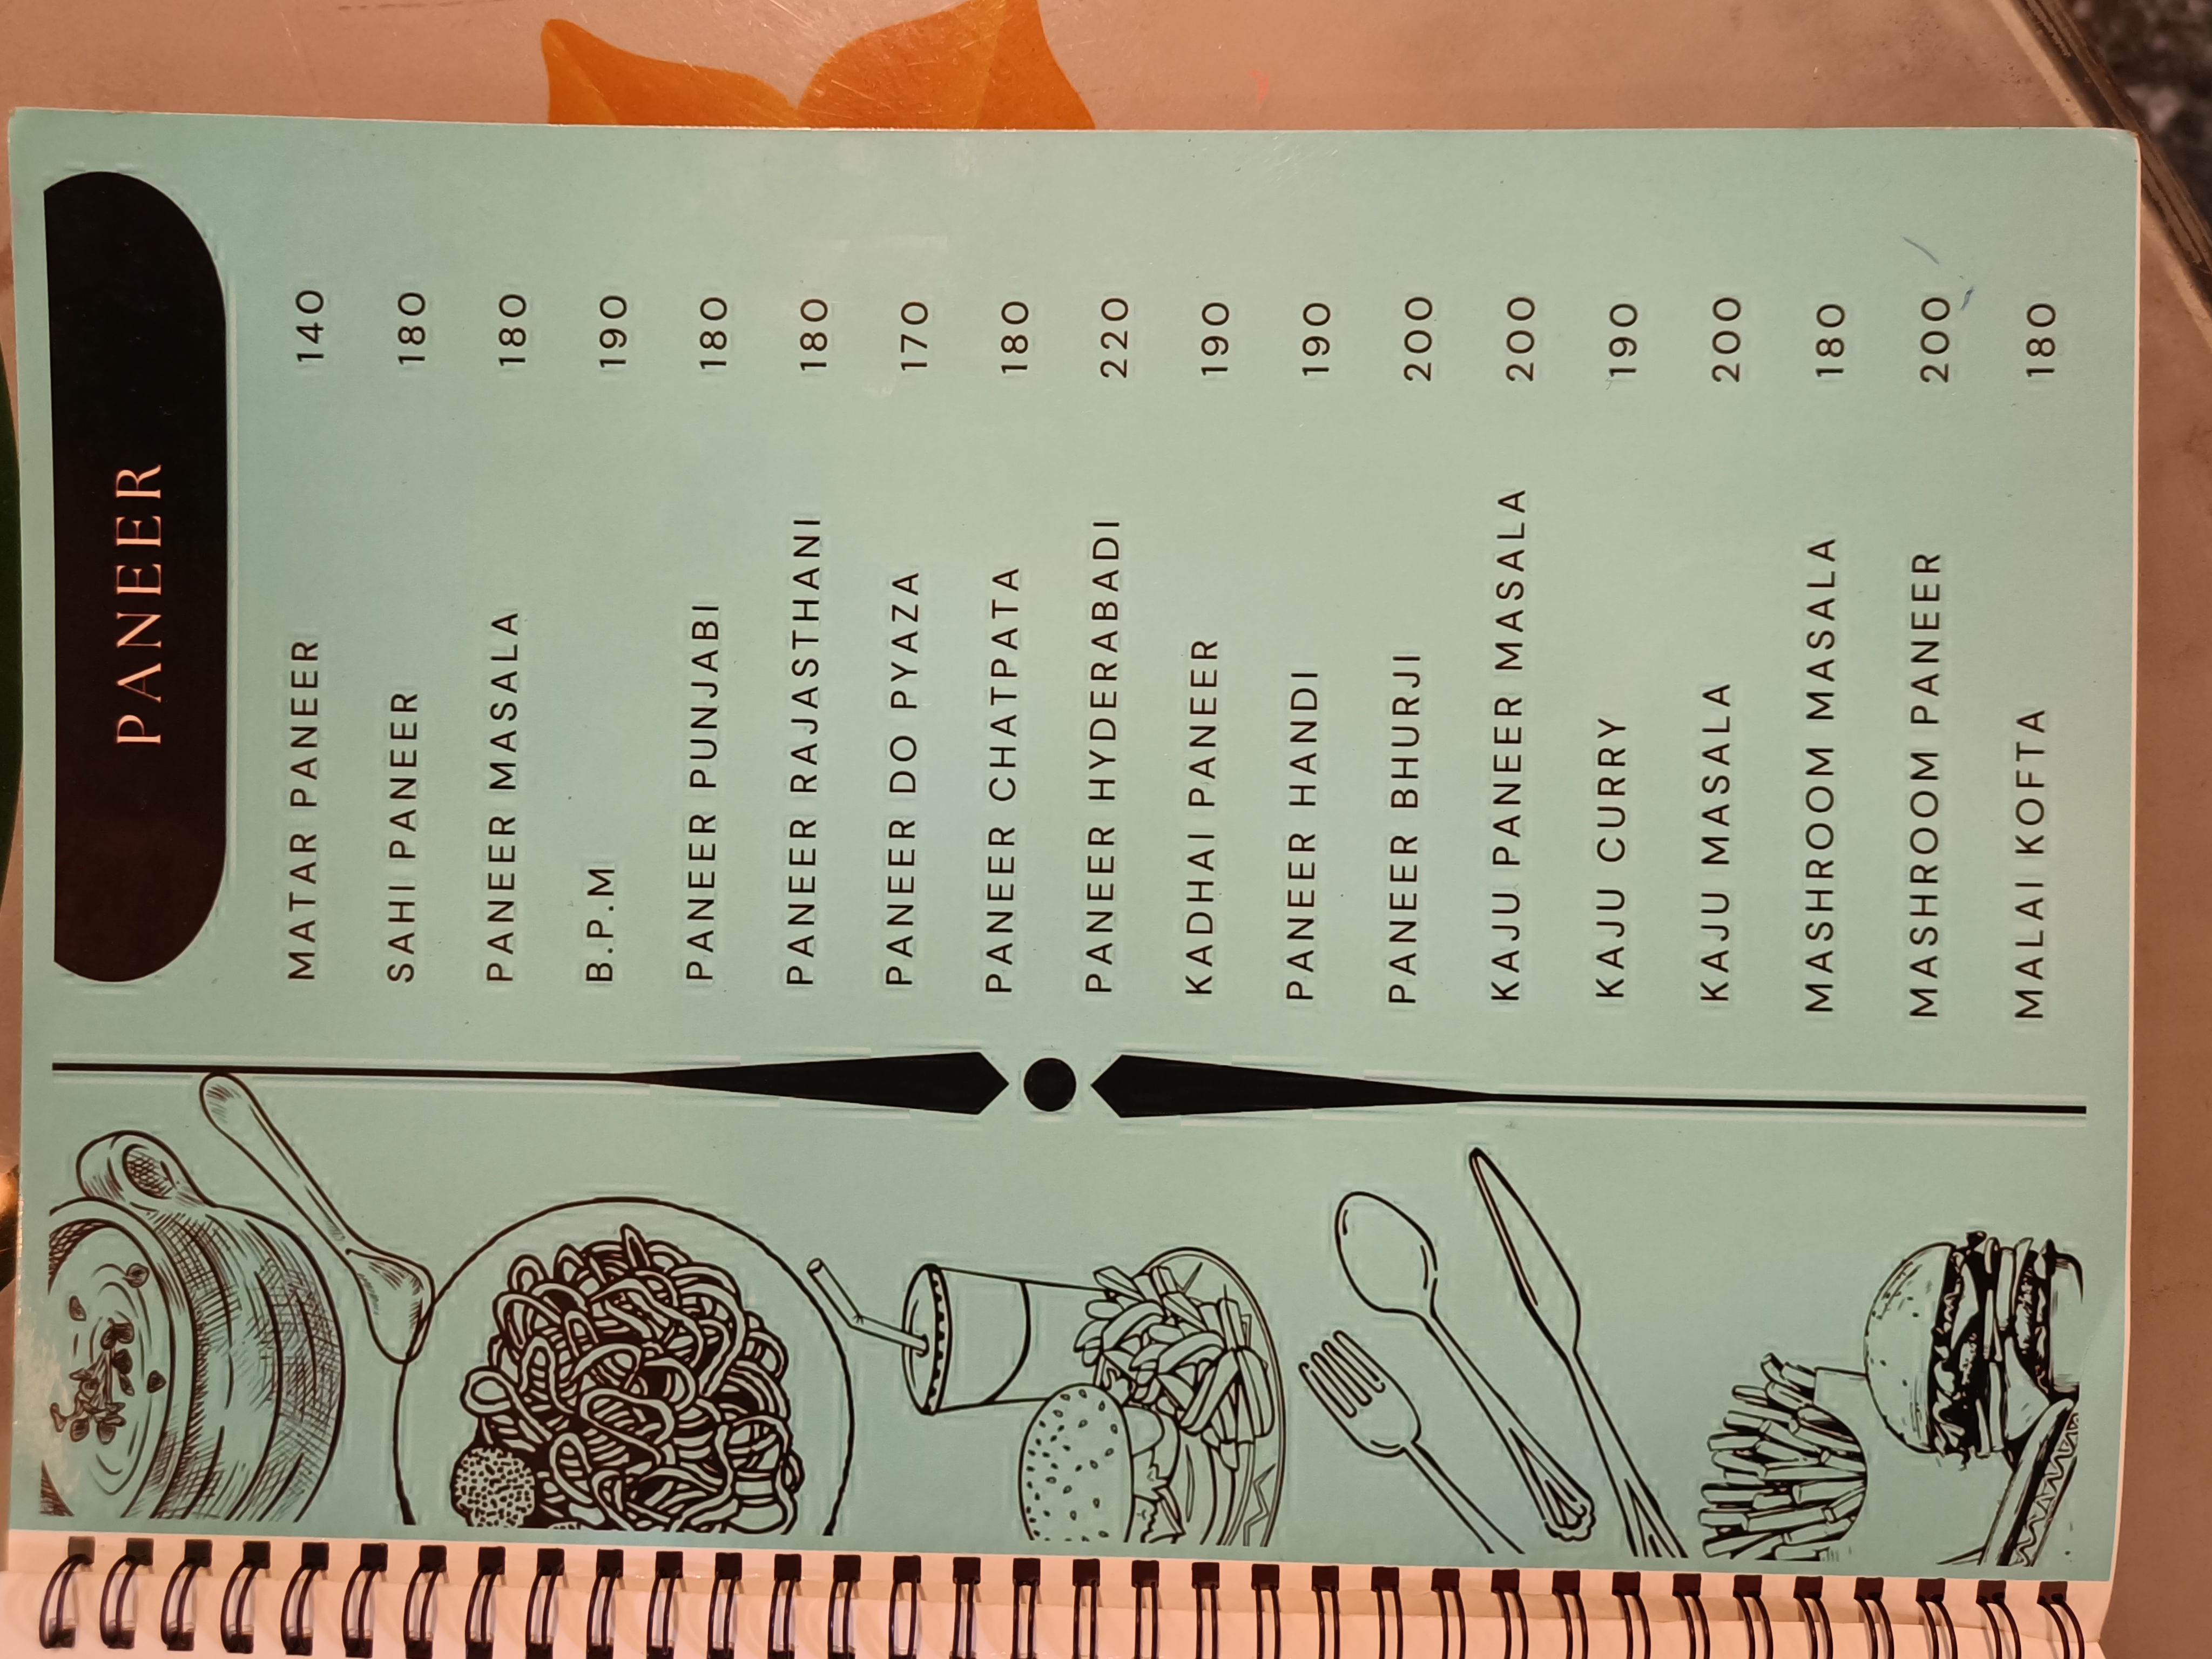 PANEER
MATAR PANEER 140
SAHI PANEER 180
PANEER MASALA 180
B.P.M 190
PANEER PUNJABI 180
PANEER RAJASTHANI 180
PANEER DO PYAZA 170
PANEER CHATPATA 180
PANEER HYDERABADI 220
KADHAI PANEER 190
PANEER HANDI 190
PANEER BHURJI 200
KAJU PANEER MASALA 200
KAJU CURRY 190
KAJU MASALA 200
MASHROOM MASALA 180
MASHROOM PANEER 200
MALAI KOFTA 180